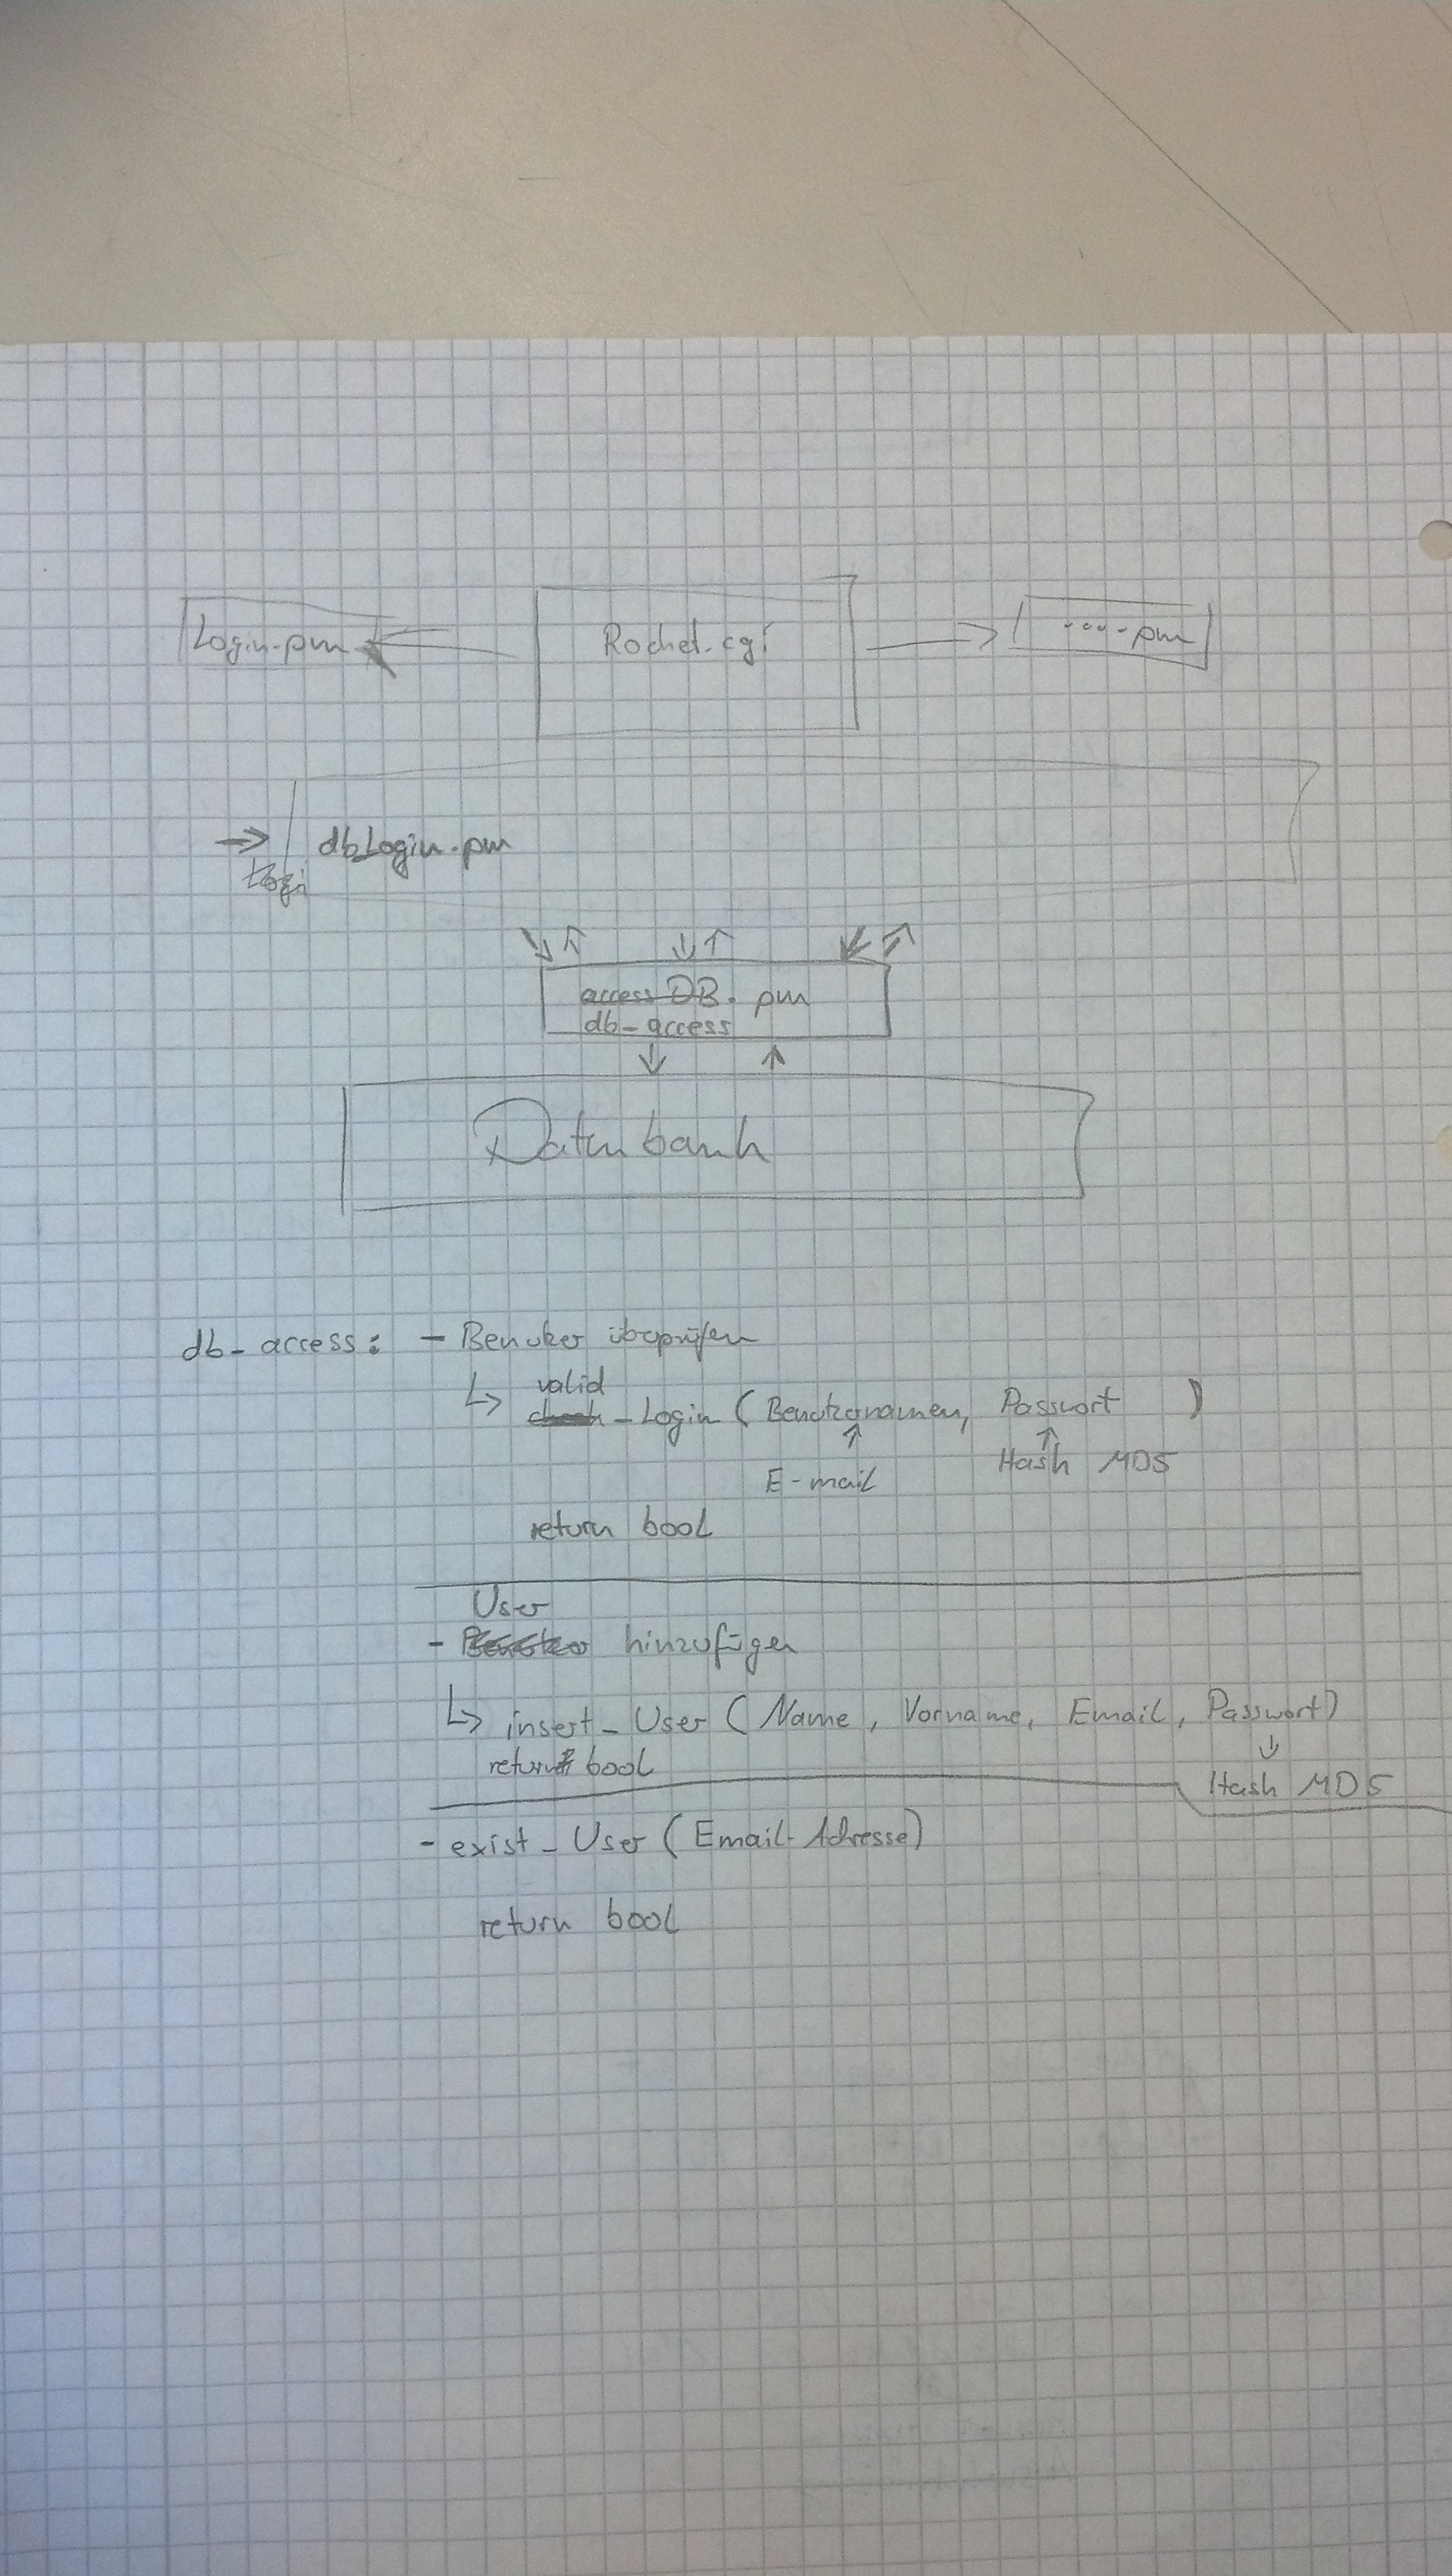 Login.pm
Rocket.cgi
....pm
db_Login.pm
Logi
access DB. pm
db_access
Datenbank
db_access: - Benutzer überprüfen
valid
↳ check_Login (Benutzernamen, Passwort )
E-mail
Hash MD5
return bool
User
- Benutzer hinzufügen
↳ insert_User (Name, Vorname, Email, Passwort)
return bool
Hash MD5
- exist_User (Email-Adresse)
return bool